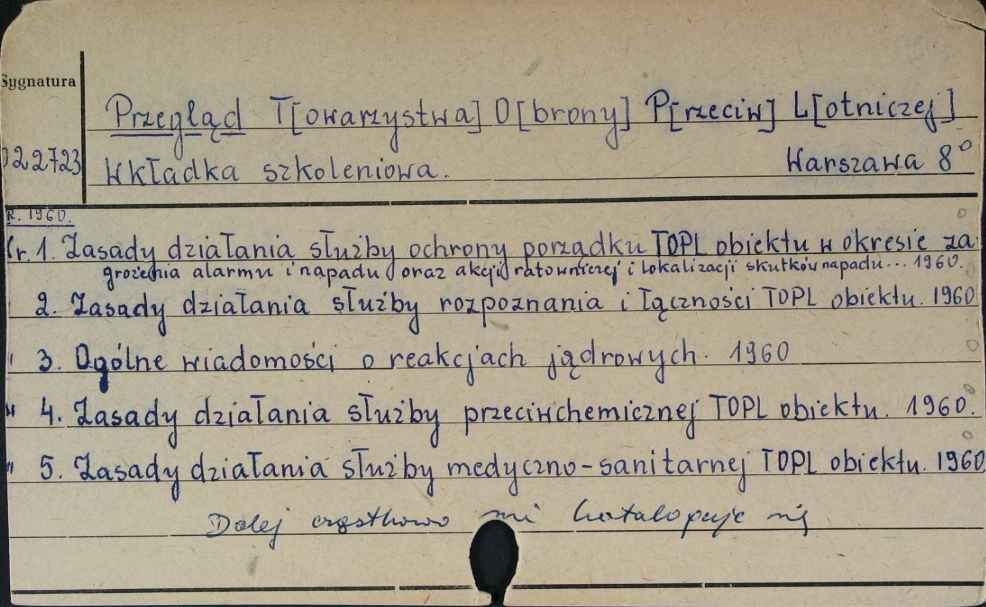 Sygnatura
Przegląd T[owarzystwa] O[brony] P[rzeciw] L[otniczej]
22723 Wkładka szkoleniowa. Warszawa 8°
R. 1960.
Nr. 1. Zasady działania służby ochrony porządku TOPL obiektu w okresie za
grożenia alarmu i napadu oraz akcji ratowniczej i lokalizacji skutków napadu... 1960.
2. Zasady działania służby rozpoznania i łączności TOPL obiektu. 1960
" 3. Ogólne wiadomości o reakcjach jądrowych. 1960
" 4. Zasady działania służby przeciwchemicznej TOPL obiektu. 1960.
" 5. Zasady działania służby medyczno-sanitarnej TOPL obiektu. 1960
Dalej cząstkowo nie kataloguje się